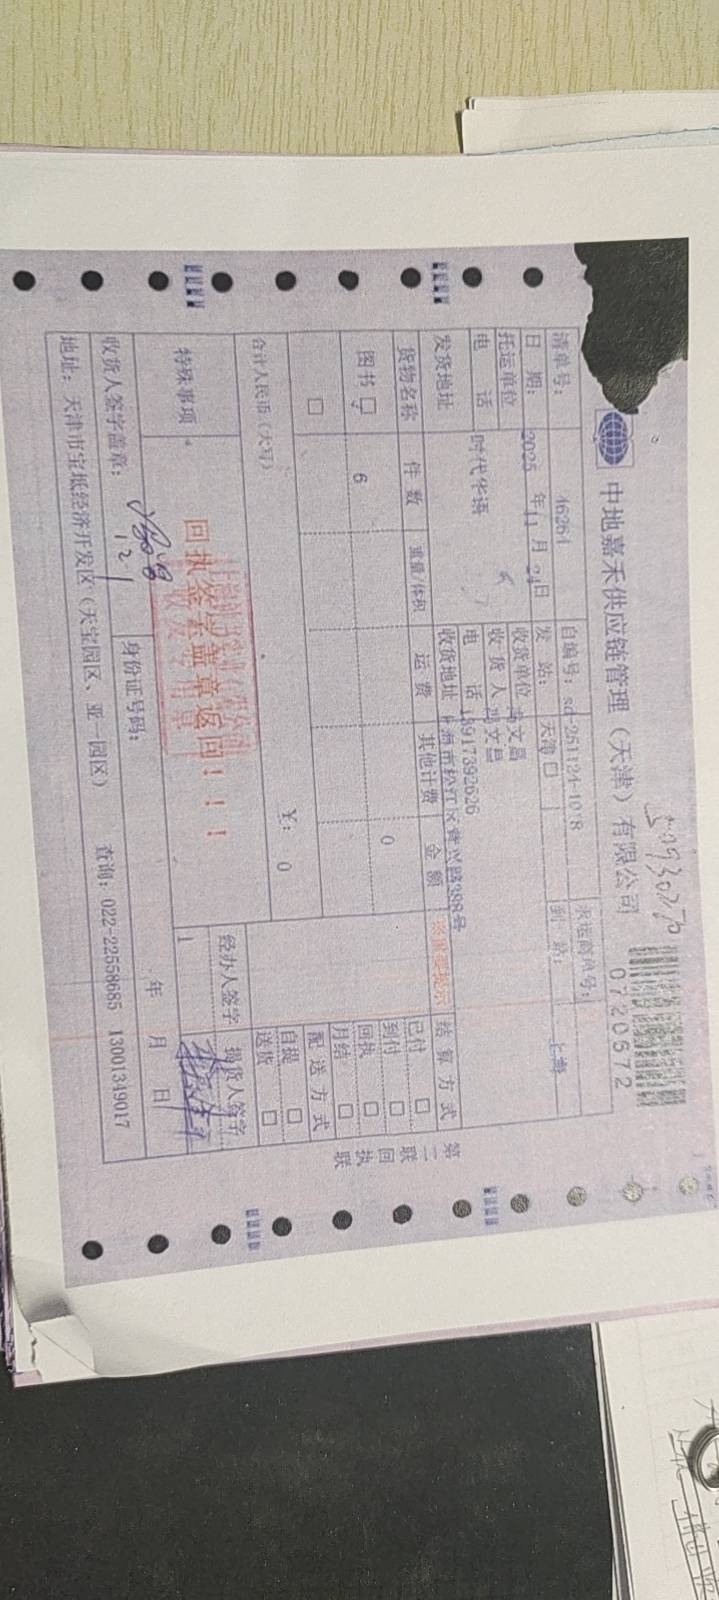 中地嘉禾供应链管理（天津）有限公司
0720572
清单号： 46264 自编号：sd-251124-1018 承运商单号：
日 期： 2025 年 11 月 24 日 发 站： 天津 到 站： 上海
托运单位 时代华语 收货单位
收 货 人
电 话 电 话
发货地址 收货地址
货物名称 件 数 重量/体积 运 费 其他计费 金 额 结 算 方 式
图书 6 0 已付
到付
回执
月结
合计人民币（大写） ￥： 0 配 送 方 式
自提
送货
特殊事项 回执签字盖章返回！！！ 经办人签字 提货人签字
收货人签字盖章： 12.1 身份证号码： 年 月 日
地址：天津市宝坻经济开发区（天宝园区、亚一园区） 查询：022-22558685 13001349017
第二联 回执联